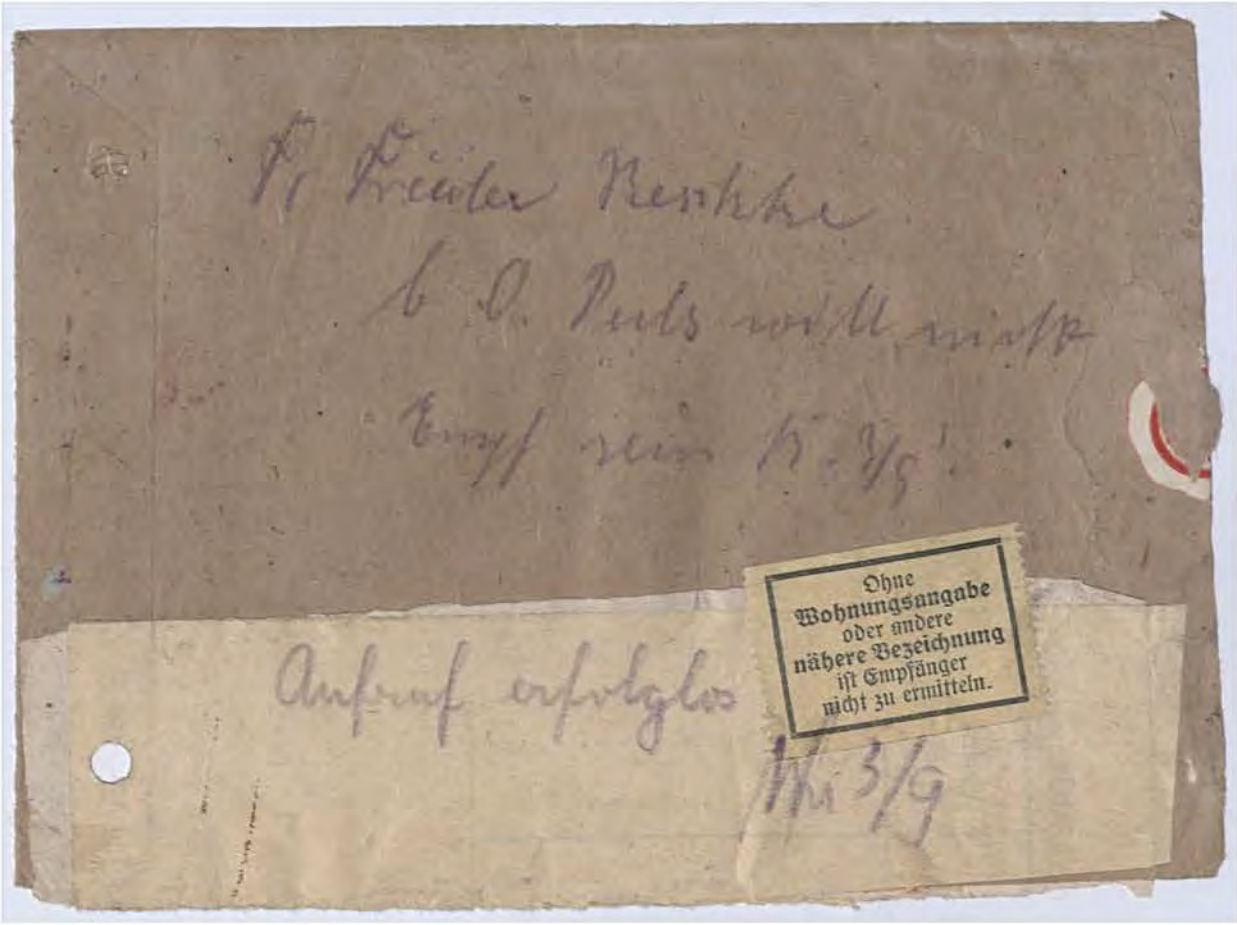 Fr Frieder Reschke
b O. Puls will nicht
Empf sein K. 3/9!
Ohne
Wohnungsangabe
oder andere
nähere Bezeichnung
ist Empfänger
nicht zu ermitteln.
Aufruf erfolglos
3/9